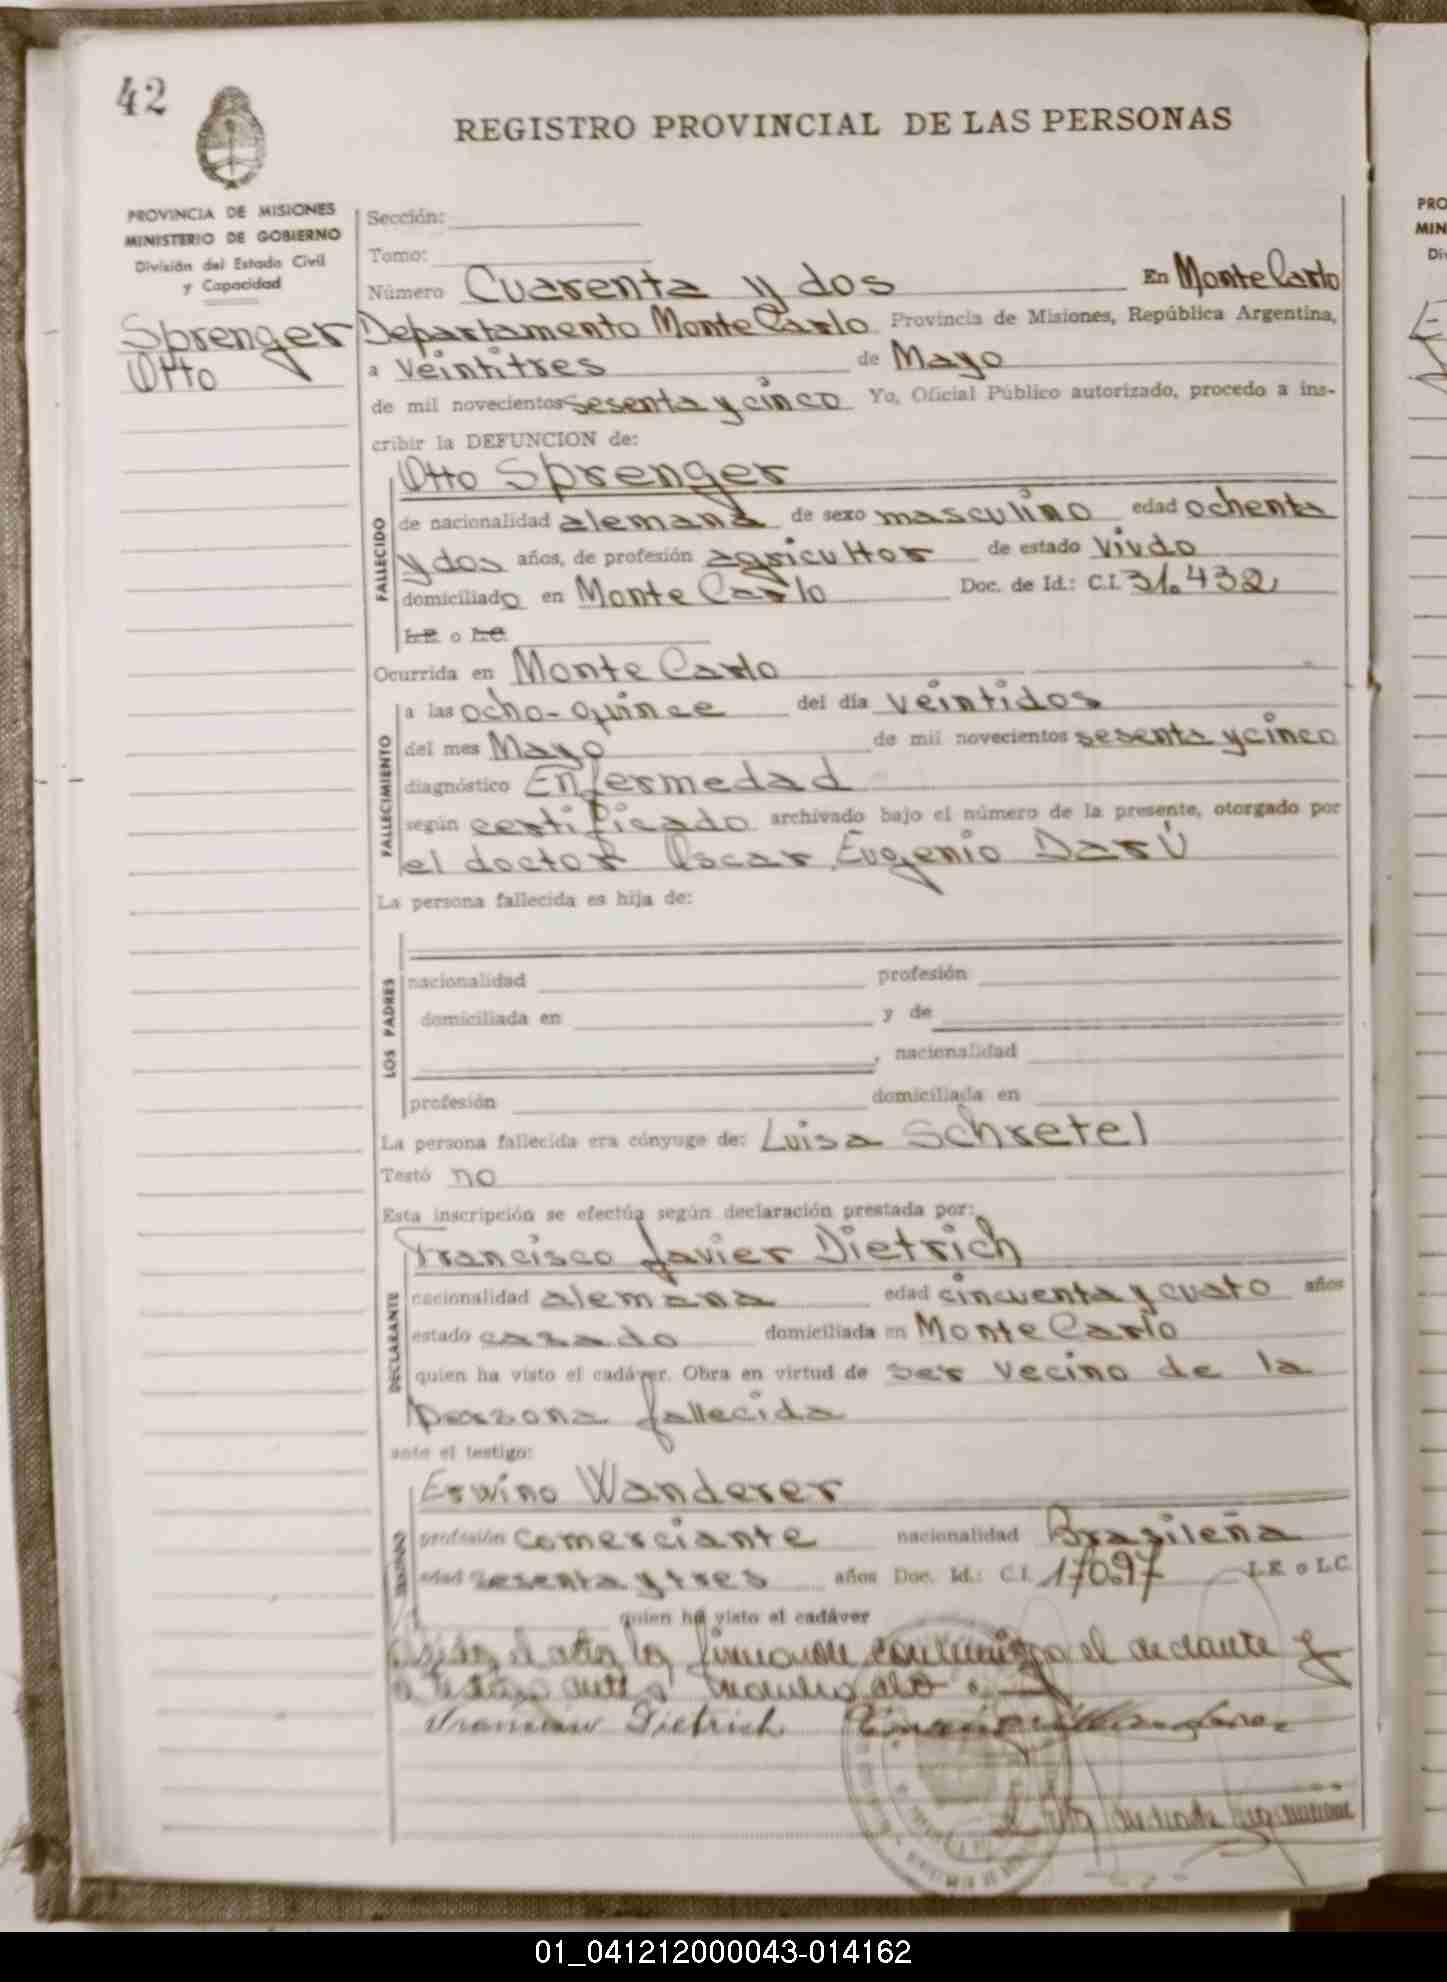 42
REGISTRO PROVINCIAL DE LAS PERSONAS
PROVINCIA DE MISIONES
MINISTERIO DE GOBIERNO
División del Estado Civil
y Capacidad
Sprenger
Otto
Sección:
Tomo:
Número Cuarenta y dos En Monte Carlo
Departamento Monte Carlo Provincia de Misiones, República Argentina,
a veintitres de Mayo
de mil novecientos sesenta y cinco Yo, Oficial Público autorizado, procedo a ins-
cribir la DEFUNCION de:
FALLECIDO
Otto Sprenger
de nacionalidad alemana de sexo masculino edad ochenta
y dos años, de profesión agricultor de estado viudo
domiciliado en Monte Carlo Doc. de Id.: C.I. 31.432
L.E. o L.C.
Ocurrida en Monte Carlo
FALLECIMIENTO
a las ocho-quince del día veintidos
del mes Mayo de mil novecientos sesenta y cinco
diagnóstico Enfermedad
según certificado archivado bajo el número de la presente, otorgado por
el doctor Oscar Eugenio Darú
La persona fallecida es hija de:
LOS PADRES
nacionalidad profesión
domiciliada en y de
, nacionalidad
profesión domiciliada en
La persona fallecida era cónyuge de: Luisa Schretel
Testó no
Esta inscripción se efectúa según declaración prestada por:
DECLARANTE
Francisco Javier Dietrich
nacionalidad alemana edad cincuenta y cuato años
estado casado domiciliada en Monte Carlo
quien ha visto el cadáver. Obra en virtud de ser vecino de la
persona fallecida
ante el testigo:
TESTIGO
Erwino Wanderer
profesión comerciante nacionalidad Brasileña
edad sesenta y tres años Doc. Id.: C.I. 17097 L.E. o L.C.
quien ha visto el cadáver
el acta la firmaron conmigo el declante y
Dietrich
01_041212000043-014162